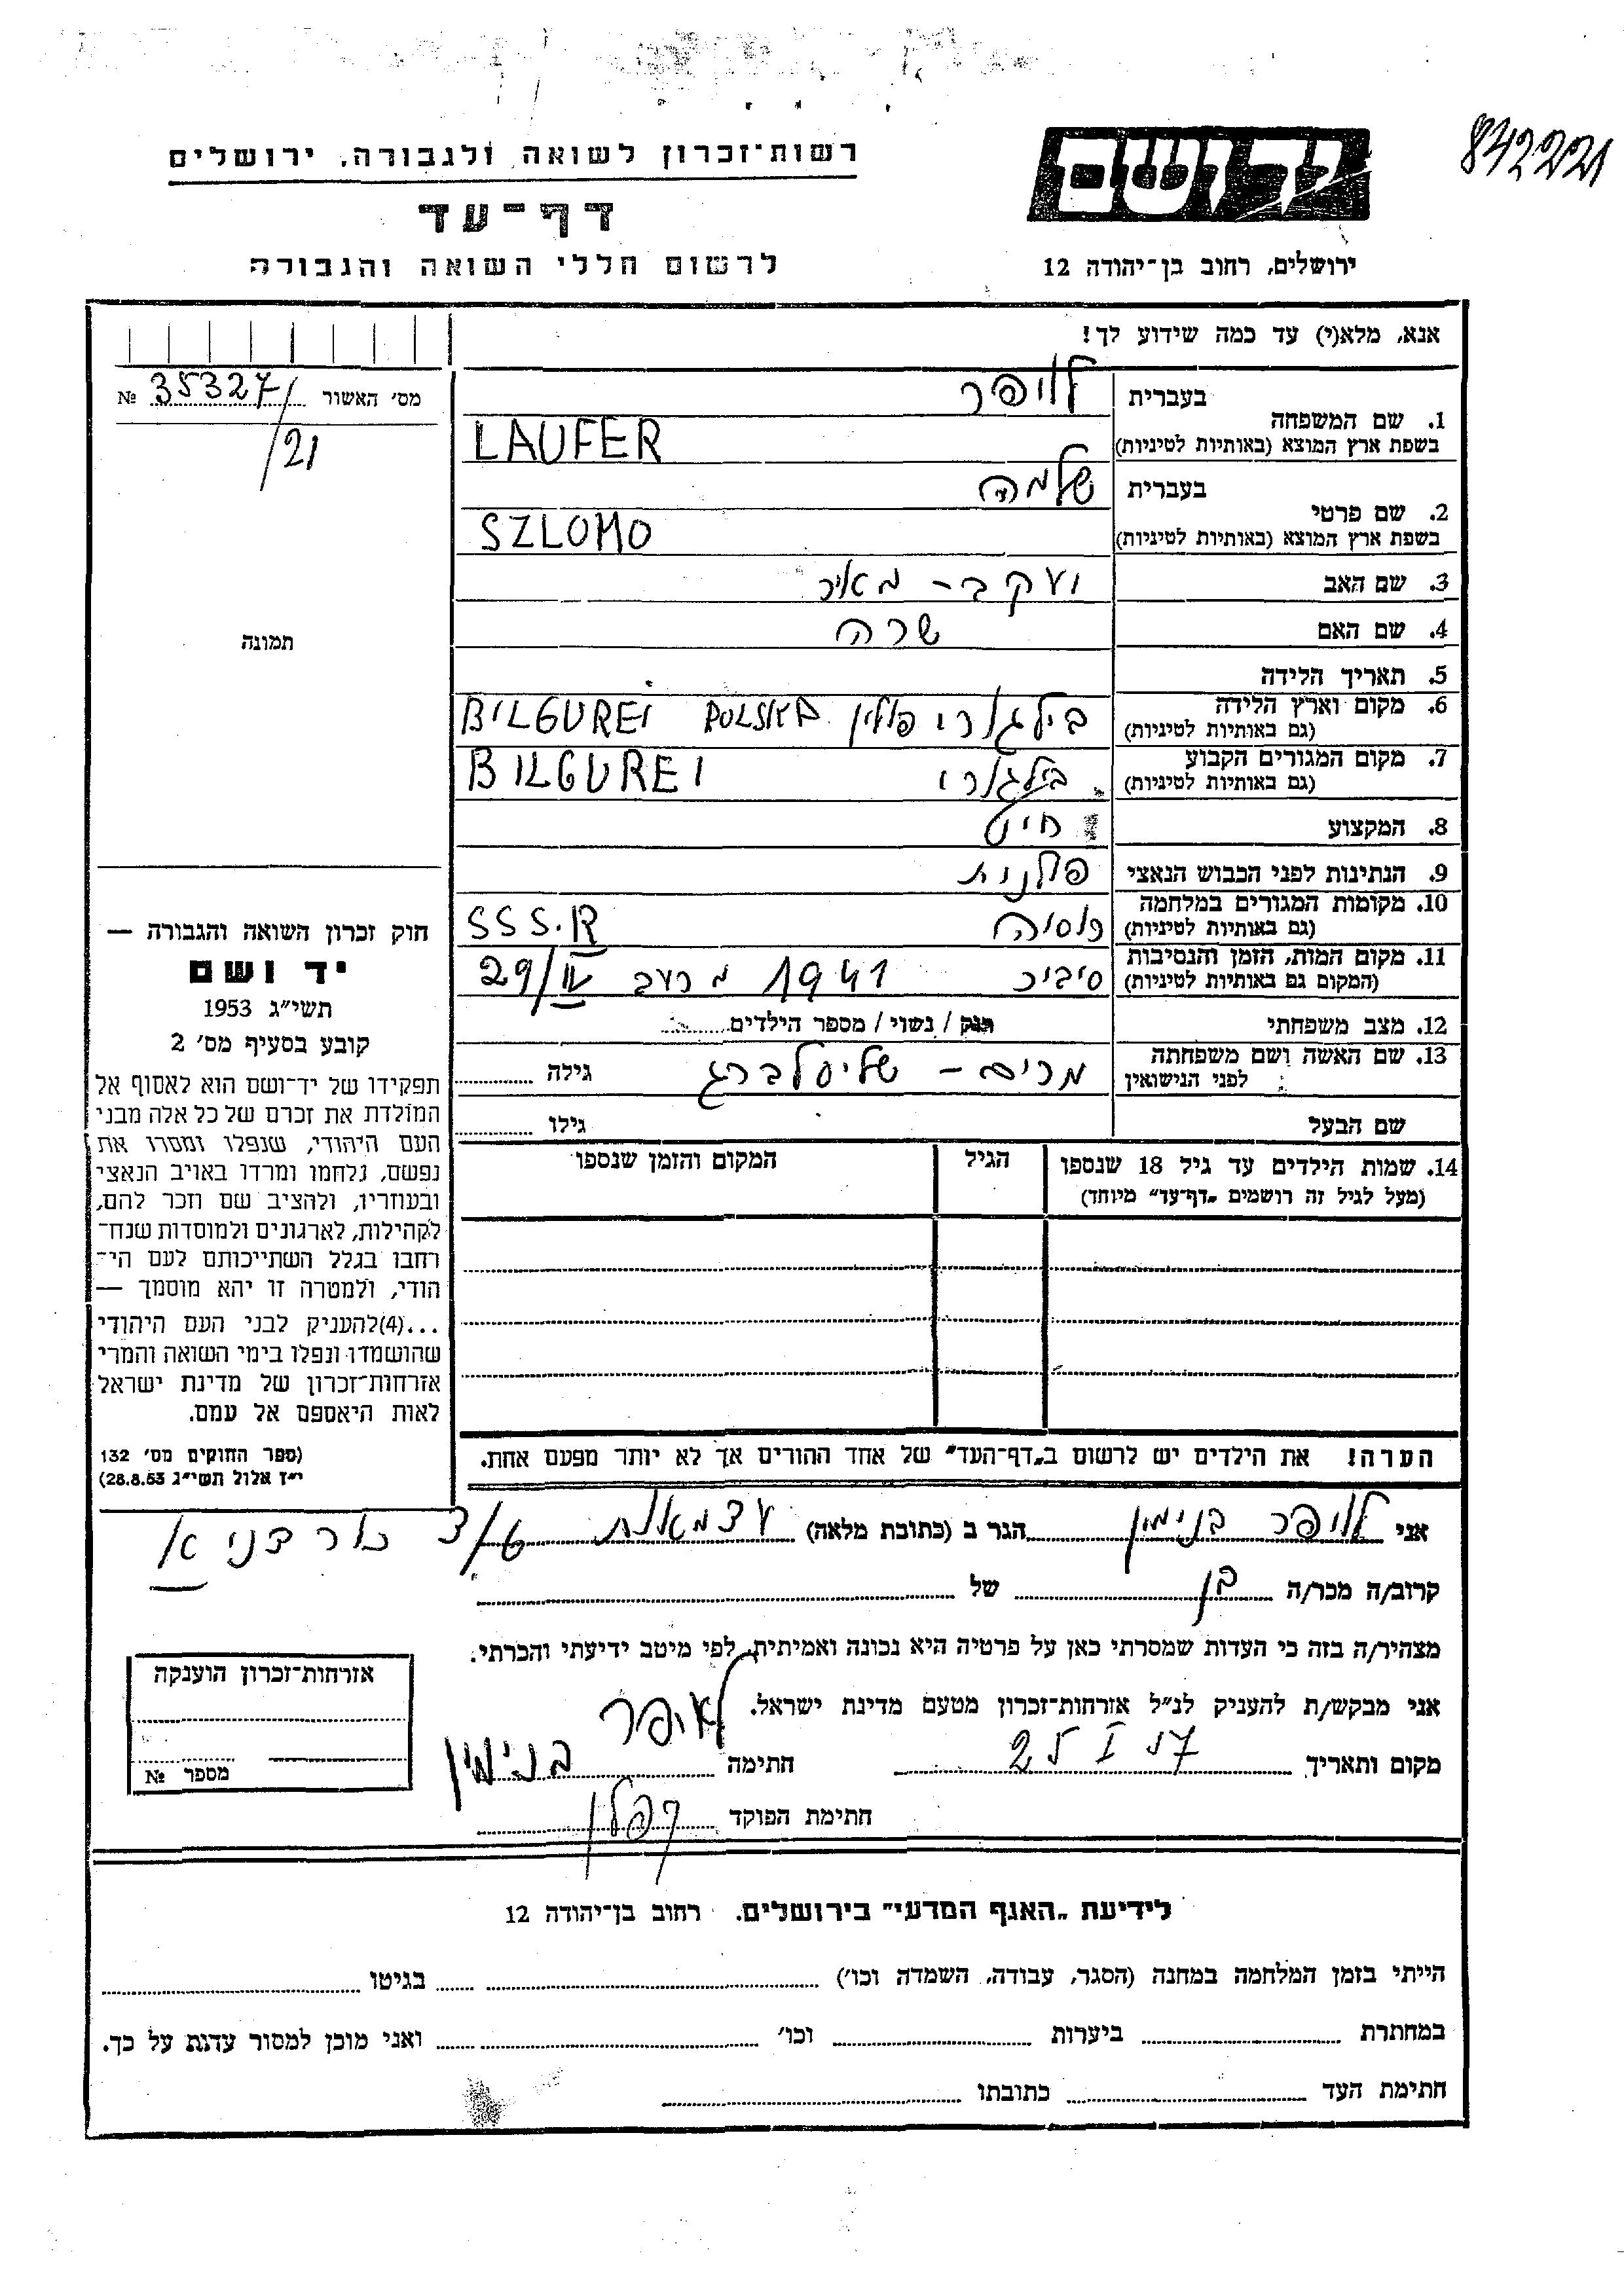 842221
יד ושם
רשות־זכרון לשואה ולגבורה, ירושלים
דף־עד
לרשום חללי השואה והגבורה
ירושלים, רחוב בן־יהודה 12
אנא, מלא(י) עד כמה שידוע לך!
מס׳ האשור № 35327/21
תמונה
1. שם המשפחה
בעברית לויפר
בשפת ארץ המוצא (באותיות לטיניות) LAUFER
2. שם פרטי
בעברית שלמה
בשפת ארץ המוצא (באותיות לטיניות) SZLOMO
3. שם האב יעקב - מאיר
4. שם האם שרה
5. תאריך הלידה
6. מקום וארץ הלידה
(גם באותיות לטיניות) בילגורי פולין BILGUREI POLSKA
7. מקום המגורים הקבוע
(גם באותיות לטיניות) בילגורי BILGUREI
8. המקצוע חיט
9. הנתינות לפני הכבוש הנאצי פולנית
10. מקומות המגורים במלחמה
(גם באותיות לטיניות) רוסיה SSS.R
11. מקום המות, הזמן והנסיבות
(המקום גם באותיות לטיניות) סיביר 1941 מרעב 29/IV
12. מצב משפחתי רווק / נשוי / מספר הילדים
13. שם האשה ושם משפחתה
לפני הנישואין מרים - שליסלברג גילה
שם הבעל גילו
14. שמות הילדים עד גיל 18 שנספו
(מעל לגיל זה רושמים „דף־עד” מיוחד)
הגיל
המקום והזמן שנספו
חוק זכרון השואה והגבורה —
יד ושם
תשי״ג 1953
קובע בסעיף מס׳ 2
תפקידו של יד־ושם הוא לאסוף אל
המולדת את זכרם של כל אלה מבני
העם היהודי, שנפלו ומסרו את
נפשם, נלחמו ומרדו באויב הנאצי
ובעוזריו, ולהציב שם וזכר להם,
לקהילות, לארגונים ולמוסדות שנח־
רחבו בגלל השתייכותם לעם הי־
הודי, ולמטרה זו יהא מוסמך —
...(4)להעניק לבני העם היהודי
שהושמדו ונפלו בימי השואה והמרי
אזרחות־זכרון של מדינת ישראל
לאות היאספם אל עמם.
(ספר החוקים מס׳ 132
י״ז אלול תשי״ג 28.8.53)
הערה! את הילדים יש לרשום ב„דף־העד” של אחד ההורים אך לא יותר מפעם אחת.
אני לויפר בנימין הגר ב (כתובת מלאה) עצמאות
קרוב/ה מכר/ה בן של
מצהיר/ה בזה כי העדות שמסרתי כאן על פרטיה היא נכונה ואמיתית, לפי מיטב ידיעתי והכרתי.
אני מבקש/ת להעניק לנ״ל אזרחות־זכרון מטעם מדינת ישראל.
מקום ותאריך 25 I 57 חתימה לויפר בנימין
חתימת הפוקד קפלן
אזרחות־זכרון הוענקה
מספר №
לידיעת „האגף המדעי” בירושלים, רחוב בן־יהודה 12
הייתי בזמן המלחמה במחנה (הסגר, עבודה, השמדה וכו׳) בגיטו
במחתרת ביערות וכו׳ ואני מוכן למסור עדות על כך.
חתימת העד כתובתו